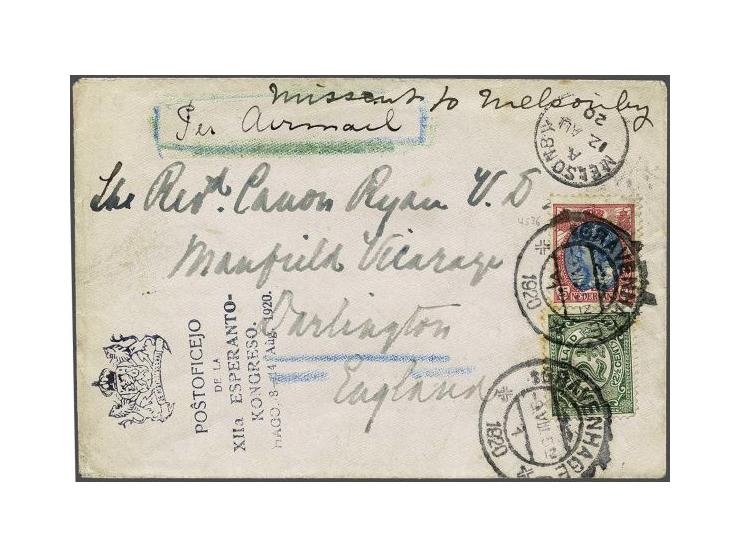 Missent to Melsonby
Per Airmail
MELSONBY
A
12 AU
20
The Revd. Canon Ryan V.D.
Manfield Vicarage
Darlington
England
POŜTOFICEJO
DE LA
XIIa ESPERANTO-
KONGRESO.
HAGO, 8—14 Aug. 1920.
4536
NEDERLAND
GRAVENHAGE
1920
GRAVENHAGE
1920